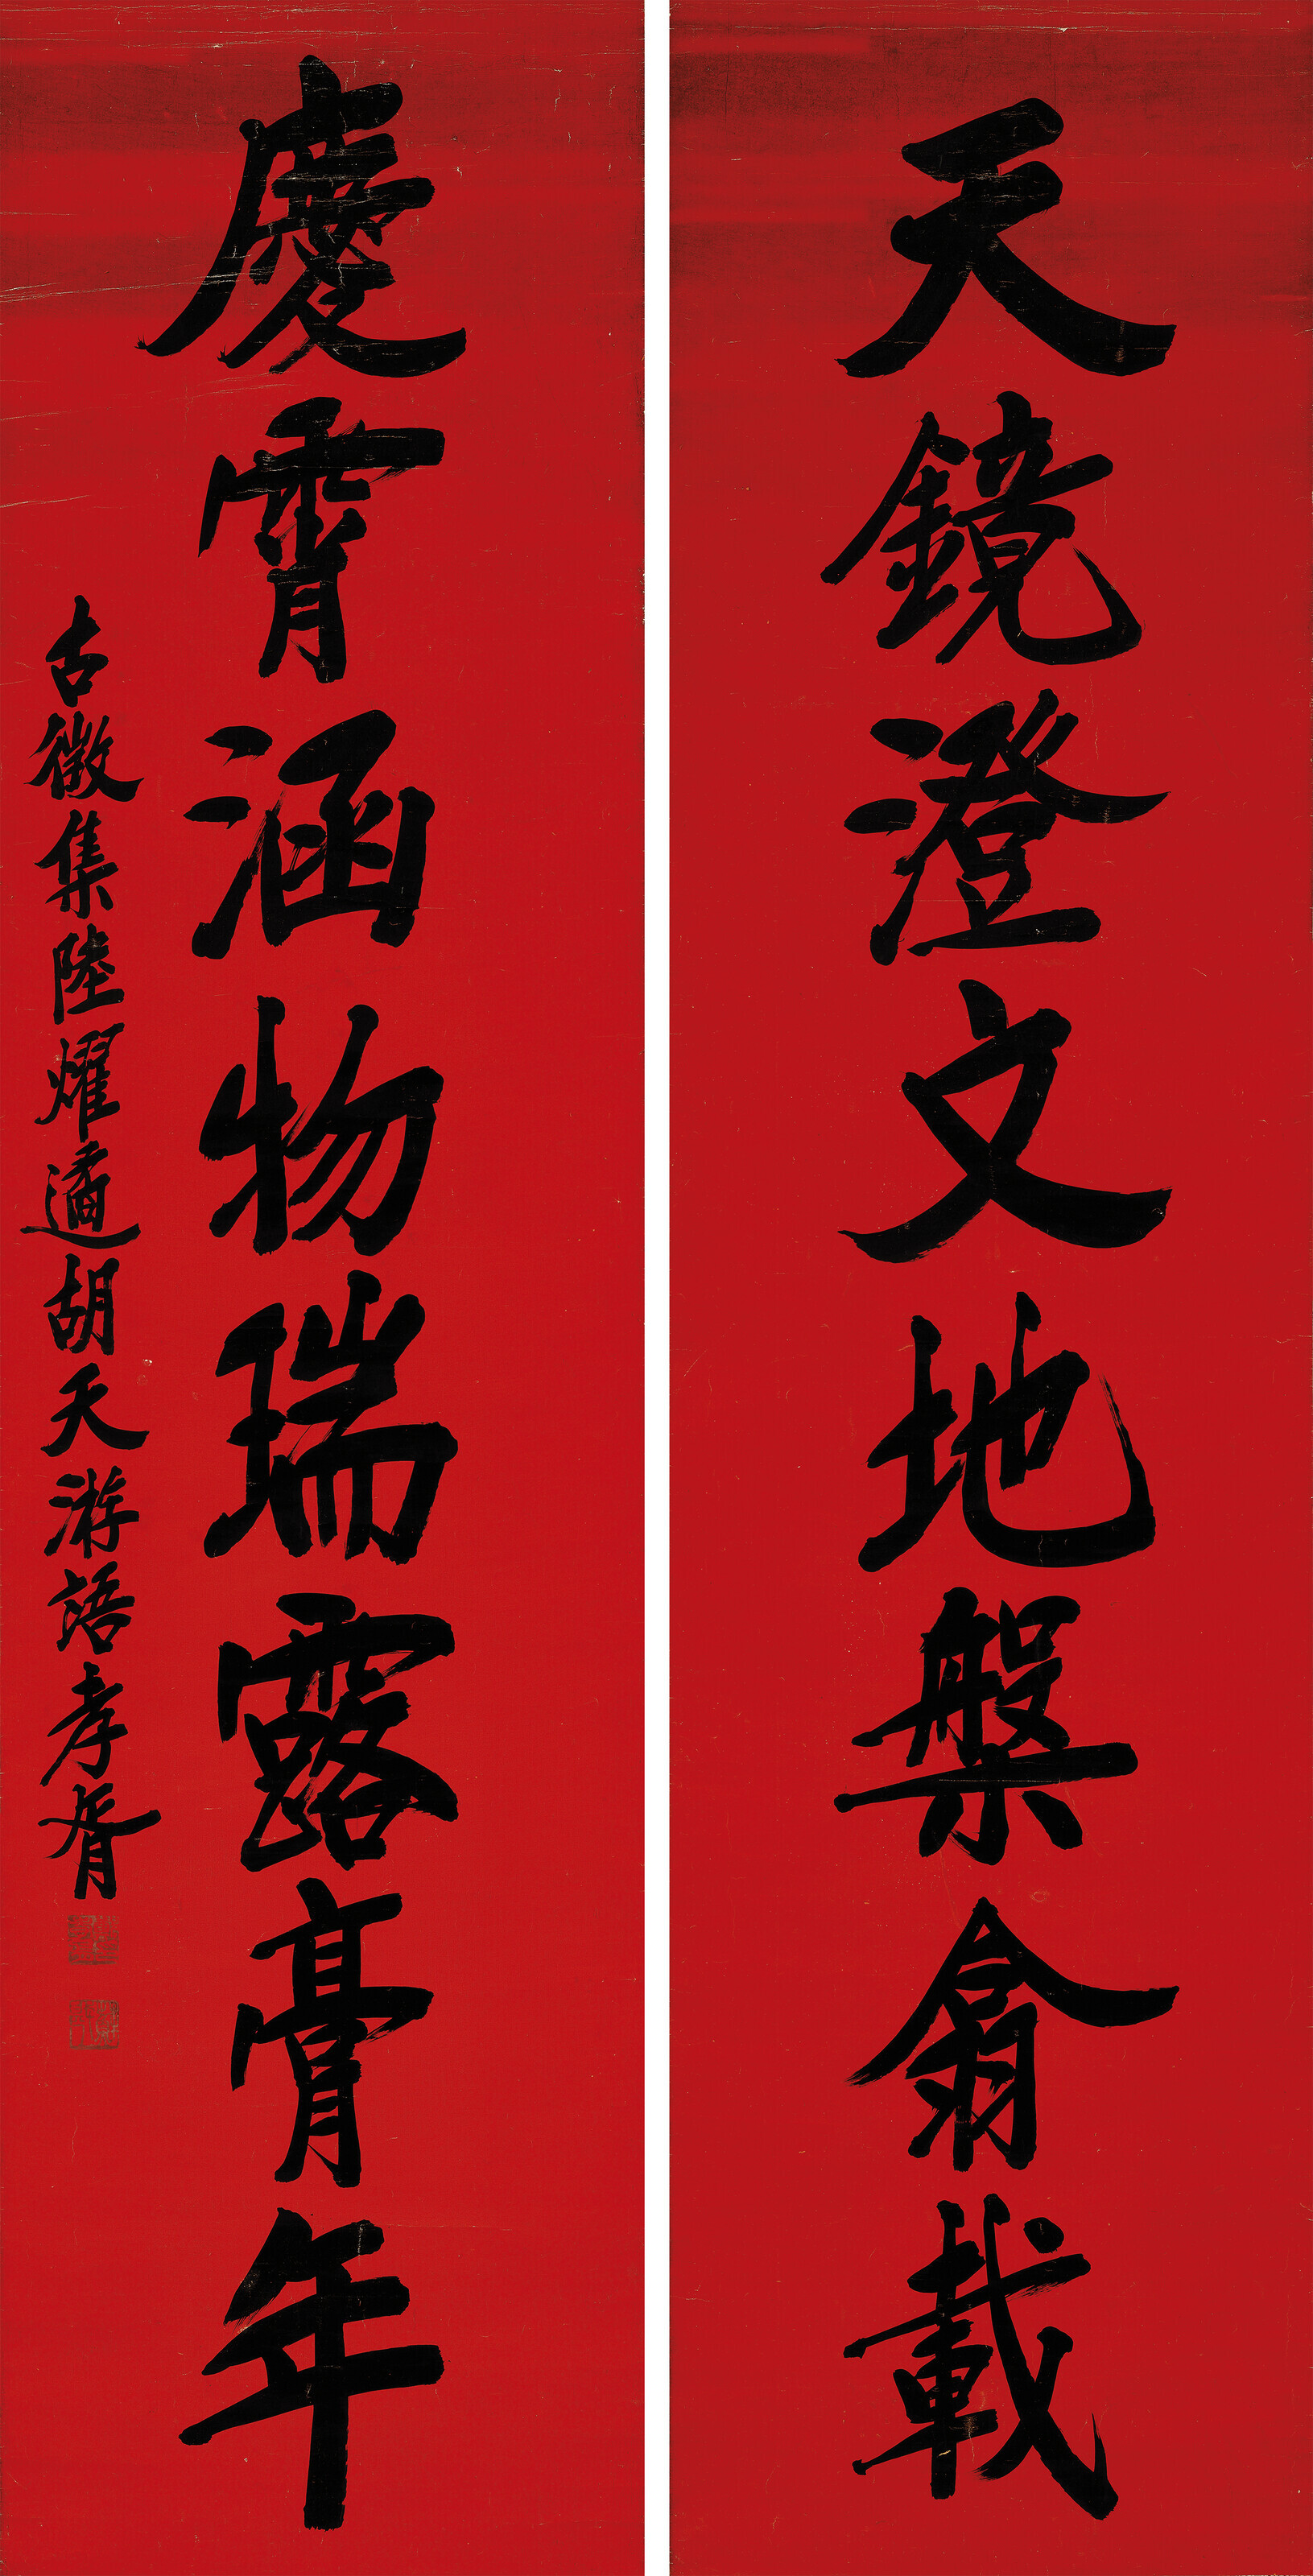 天鏡澄文地槃翕載
慶霄涵物瑞露膏年
古微集陸燿遹胡天游語孝胥